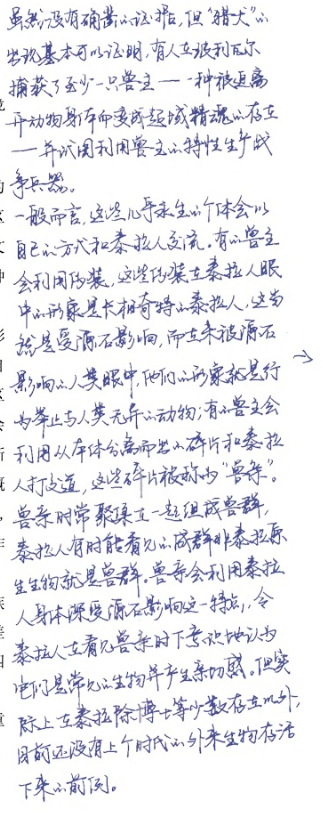 虽然没有确凿的证据，但“猎犬”的
出现基本可以证明，有人在叙利瓦尔
捕获了至少一只兽主——一种被迫离
开动物身体而变成起域精魂的存在
——并试图利用兽主的特性生产战
争兵器。
一般而言，这些几乎永生的个体会以
自己的方式和泰拉人交流。有的兽主
会利用伪装，这些伪装在泰拉人眼
中的形象是长相奇特的泰拉人，这当
然是受源石影响，而在未被源石
影响的人类眼中，他们的形象就是行
为举止与人类无异的动物；有的兽主会
利用从本体分离而出的碎片和泰拉
人打交道，这些碎片被称为“兽亲”。
兽亲时常聚集在一起组成兽群，
泰拉人有时能看见的成群非泰拉原
生生物就是兽群。兽亲会利用泰拉
人身体深受源石影响这一特点，令
泰拉人在看见兽亲时下意识地认为
它们是常见的生物并产生亲切感。但实
际上在泰拉除博士等少数存在以外，
目前还没有上个时代的外来生物存活
下来的前例。